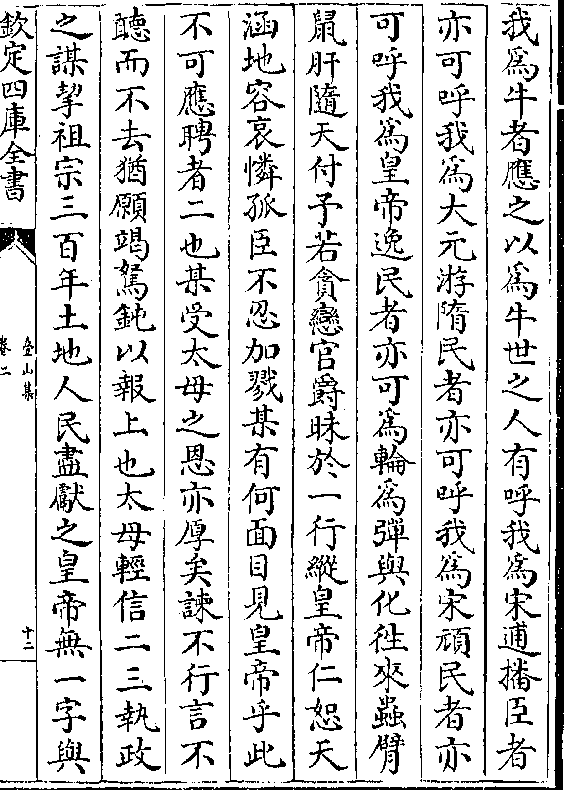 我爲牛者應之以爲牛世之人有呼我爲宋逋播臣者
亦可呼我爲大元游隋民者亦可呼我爲宋頑民者亦
可呼我爲皇帝逸民者亦可爲輪爲彈與化徃來蟲臂
鼠肝隨天付予若貪戀官爵昧於一行縱皇帝仁恕天
涵地容哀憐孤臣不忍加戮某有何面目見皇帝乎此
不可應聘者二也某受太母之恩亦厚矣諫不行言不
聽而不去猶願竭駑鈍以報上也太母輕信二三執政
之謀挈祖宗三百年土地人民盡獻之皇帝無一字與
欽定四庫全書
疊山集
卷二
十二